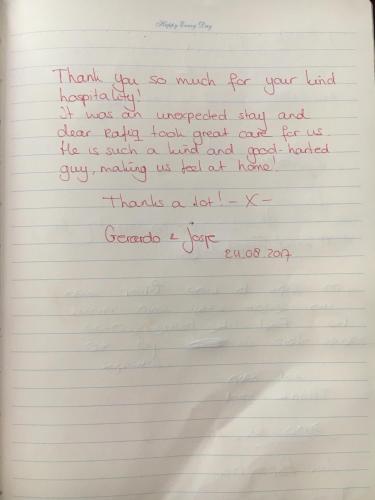 Happy Every Day
Thank you so much for your kind
hospitality!
it was an unexpected stay and
dear Rafiq took great care for us.
He is such a kind and good-harted
guy, making us feel at home!
Thanks a lot! - X -
Gerardo &
24.08.2017